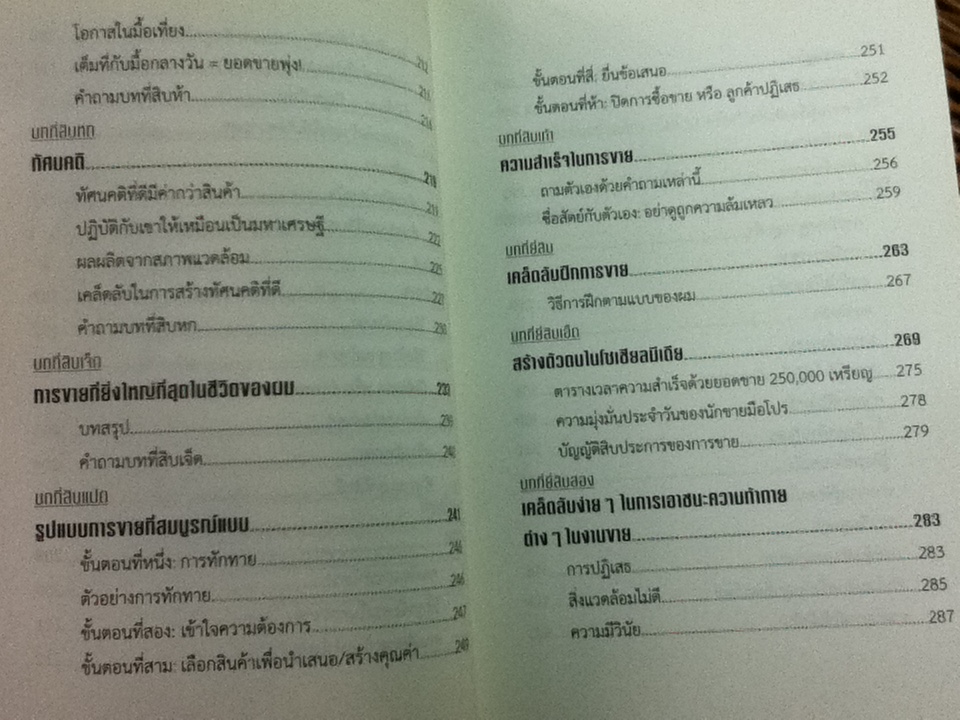 โอกาสในมื้อเที่ยง
เต็มที่กับมื้อกลางวัน = ยอดขายพุ่ง! 212
คำถามบทที่สิบห้า
บทที่สิบหก
ทัศนคติ
ทัศนคติที่ดีมีค่ากว่าสินค้า 219
ปฏิบัติกับเขาให้เหมือนเป็นมหาเศรษฐี 222
ผลผลิตจากสภาพแวดล้อม 225
เคล็ดลับในการสร้างทัศนคติที่ดี 227
คำถามบทที่สิบหก 230
บทที่สิบเจ็ด
การขายที่ยิ่งใหญ่ที่สุดในชีวิตของผม
บทสรุป
คำถามบทที่สิบเจ็ด 240
บทที่สิบแปด
รูปแบบการขายที่สมบูรณ์แบบ 241
ขั้นตอนที่หนึ่ง: การทักทาย
ตัวอย่างการทักทาย 246
ขั้นตอนที่สอง: เข้าใจความต้องการ 247
ขั้นตอนที่สาม: เลือกสินค้าเพื่อนำเสนอ/สร้างคุณค่า 249
ขั้นตอนที่สี่: ยื่นข้อเสนอ 251
ขั้นตอนที่ห้า: ปิดการซื้อขาย หรือ ลูกค้าปฏิเสธ 252
บทที่สิบเก้า
ความสำเร็จในการขาย 255
ถามตัวเองด้วยคำถามเหล่านี้ 256
ซื่อสัตย์กับตัวเอง: อย่าดูถูกความล้มเหลว 259
บทที่ยี่สิบ
เคล็ดลับฝึกการขาย 263
วิธีการฝึกตามแบบของผม 267
บทที่ยี่สิบเอ็ด
สร้างตัวตนในโซเชียลมีเดีย 269
ตารางเวลาความสำเร็จด้วยยอดขาย 250,000 เหรียญ 275
ความมุ่งมั่นประจำวันของนักขายมือโปร 278
บัญญัติสิบประการของการขาย 279
บทที่ยี่สิบสอง
เคล็ดลับง่าย ๆ ในการเอาชนะความท้าทาย
ต่าง ๆ ในงานขาย 283
การปฏิเสธ 283
สิ่งแวดล้อมไม่ดี 285
ความมีวินัย 287